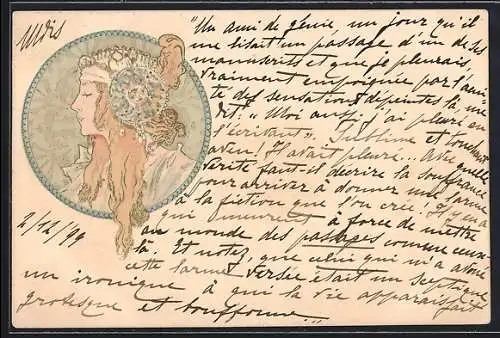 "Un ami de génie un jour qu'il
me lisait un passage d'un de ses
manuscrits et que je pleurais,
vraiment empoignée par l'acui-
té des sensations dépeintes là, me
dit: "Moi aussi, j'ai pleuré en
l'écrivant". Sublime et touchant
aveu! Il avait pleuré... Avec quelle
vérité faut-il décrire la souffrance
pour arriver à donner une larme
à la fiction que l'on crée! Il y en a
qui meurent à force de mettre
au monde des passages comme ceux-
là. Et notez, que celui qui m'a avoué
cette larme versée était un sceptique,
un ironique à qui la vie apparaissait
grotesque et bouffonne...
2/12/99